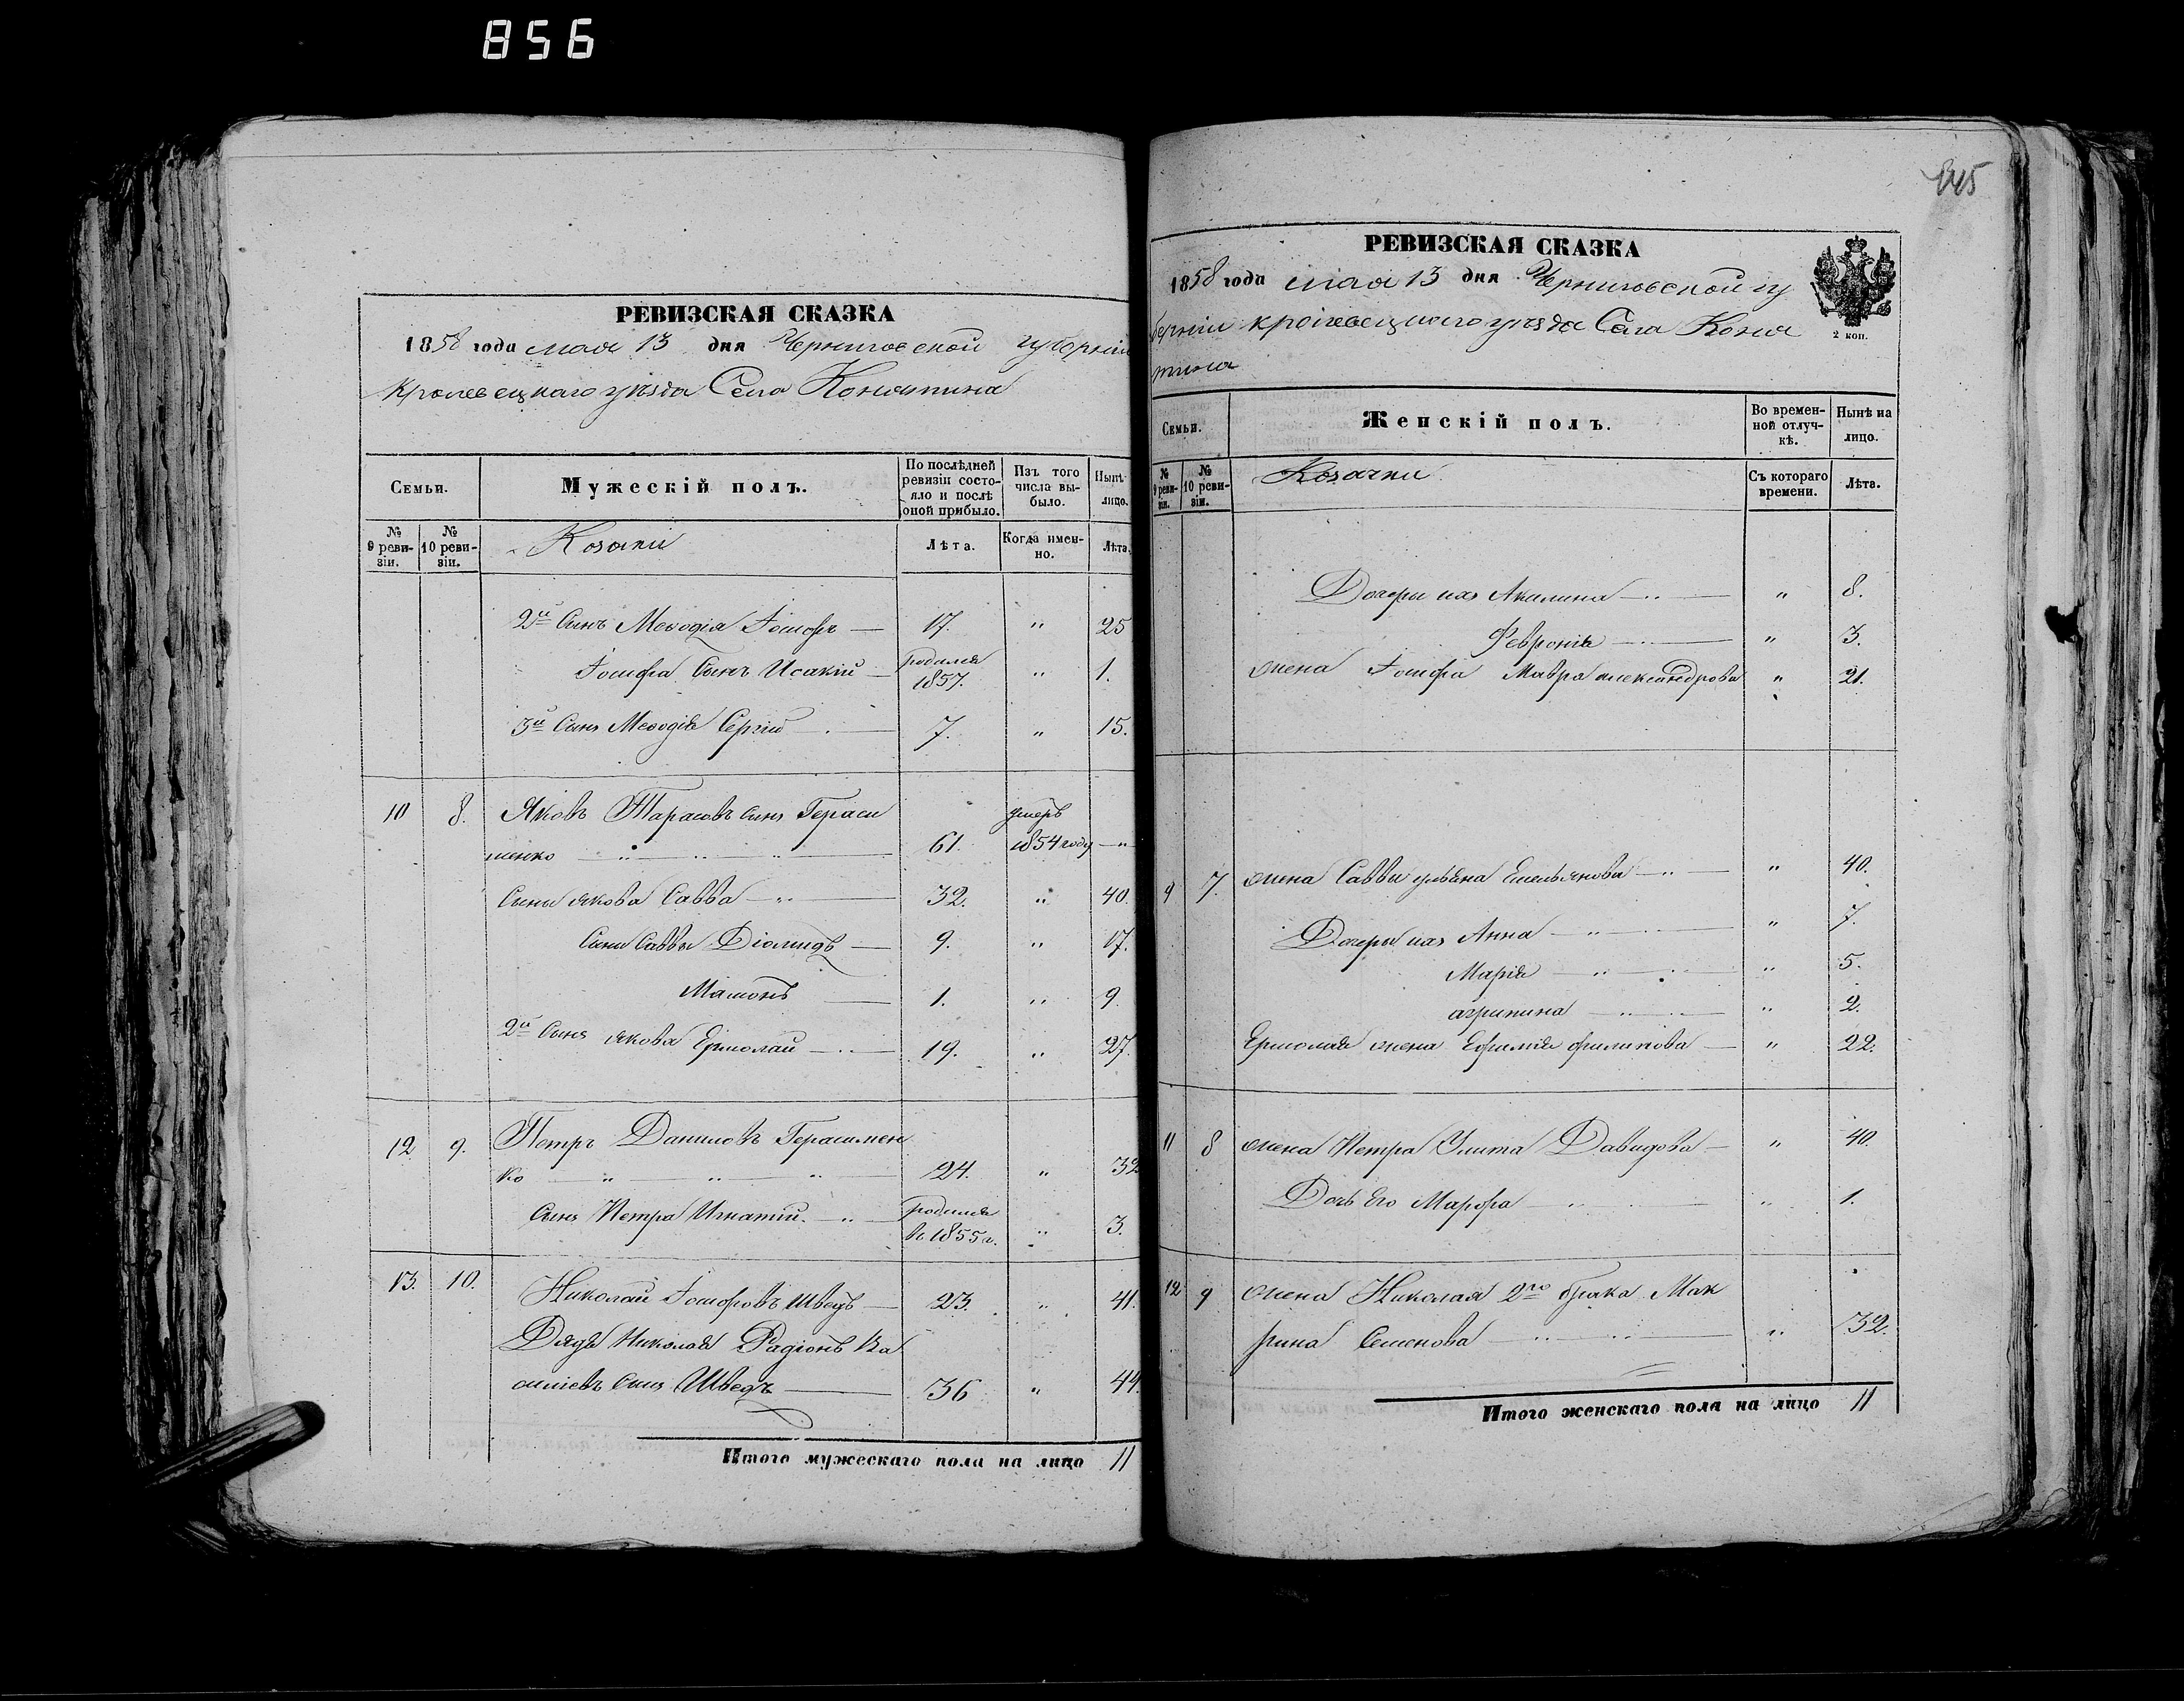 856
РЕВИЗСКАЯ СКАЗКА
1858 года мая 13 дня Черниговской губерніи
Кролевецкаго уѣзда Села Конятина
Семьи.
Мужескій полъ.
По послѣдней ревизіи состояло и послѣ оной прибыло.
Изъ того числа выбыло.
Нынѣ лицо.
№ 9 ревизіи.
№ 10 ревизіи.
Козаки
Лѣта.
Когда именно.
Лѣта.
2й Сынъ Меѳодія Іосифъ — 17. " 25
Іосифа Сынъ Исакій — родился 1857. " 1.
3й Сынъ Меѳодія Сергій — 7. " 15.
10 8. Яковъ Тарасовъ сынъ Гераси
менко 61. умеръ 1854 году — " —
Сыны Якова Савва — 32. " 40.
Сыны Саввы Діомидъ — 9. " 17.
Мамонъ — 1. " 9.
2й Сынъ Якова Ермолай — 19. " 27.
12 9. Петръ Даниловъ Герасимен
ко 24. " 32
Сынъ Петра Игнатій. — родился въ 1855 г. " 3.
13. 10. Николай Іосифовъ Шведъ — 23. " 41.
Дядя Николая Радіонъ Ва
силіевъ Сынъ Шведъ — 36 " 44.
Итого мужескаго пола на лицо 11
845
РЕВИЗСКАЯ СКАЗКА
1858 года мая 13 дня Черниговской гу
берніи Кролевецкаго уѣзда Села Коня
тина
2 коп.
Семьи.
Женскій полъ.
Во временной отлучкѣ.
Нынѣ на лицо.
№ 9 ревизіи.
№ 10 ревизіи.
Козачки
Съ котораго времени.
Лѣта.
Дочери ихъ Акилина — " 8.
Февронія — " 3.
жена Іосифа Мавра Александрова " 21.
9 7. жена Саввы Ульяна Емельянова — " 40.
Дочери ихъ Анна — " 7.
Марія — " 5.
Агрипина — " 2.
Ермолая жена Ефимія Филипова — " 22.
11 8 жена Петра Улита Давидова — " 40.
Дочь Его Марфа — " 1.
12 9 жена Николая 2го брака Мак
рина Семенова — " 32.
Итого женскаго пола на лицо 11